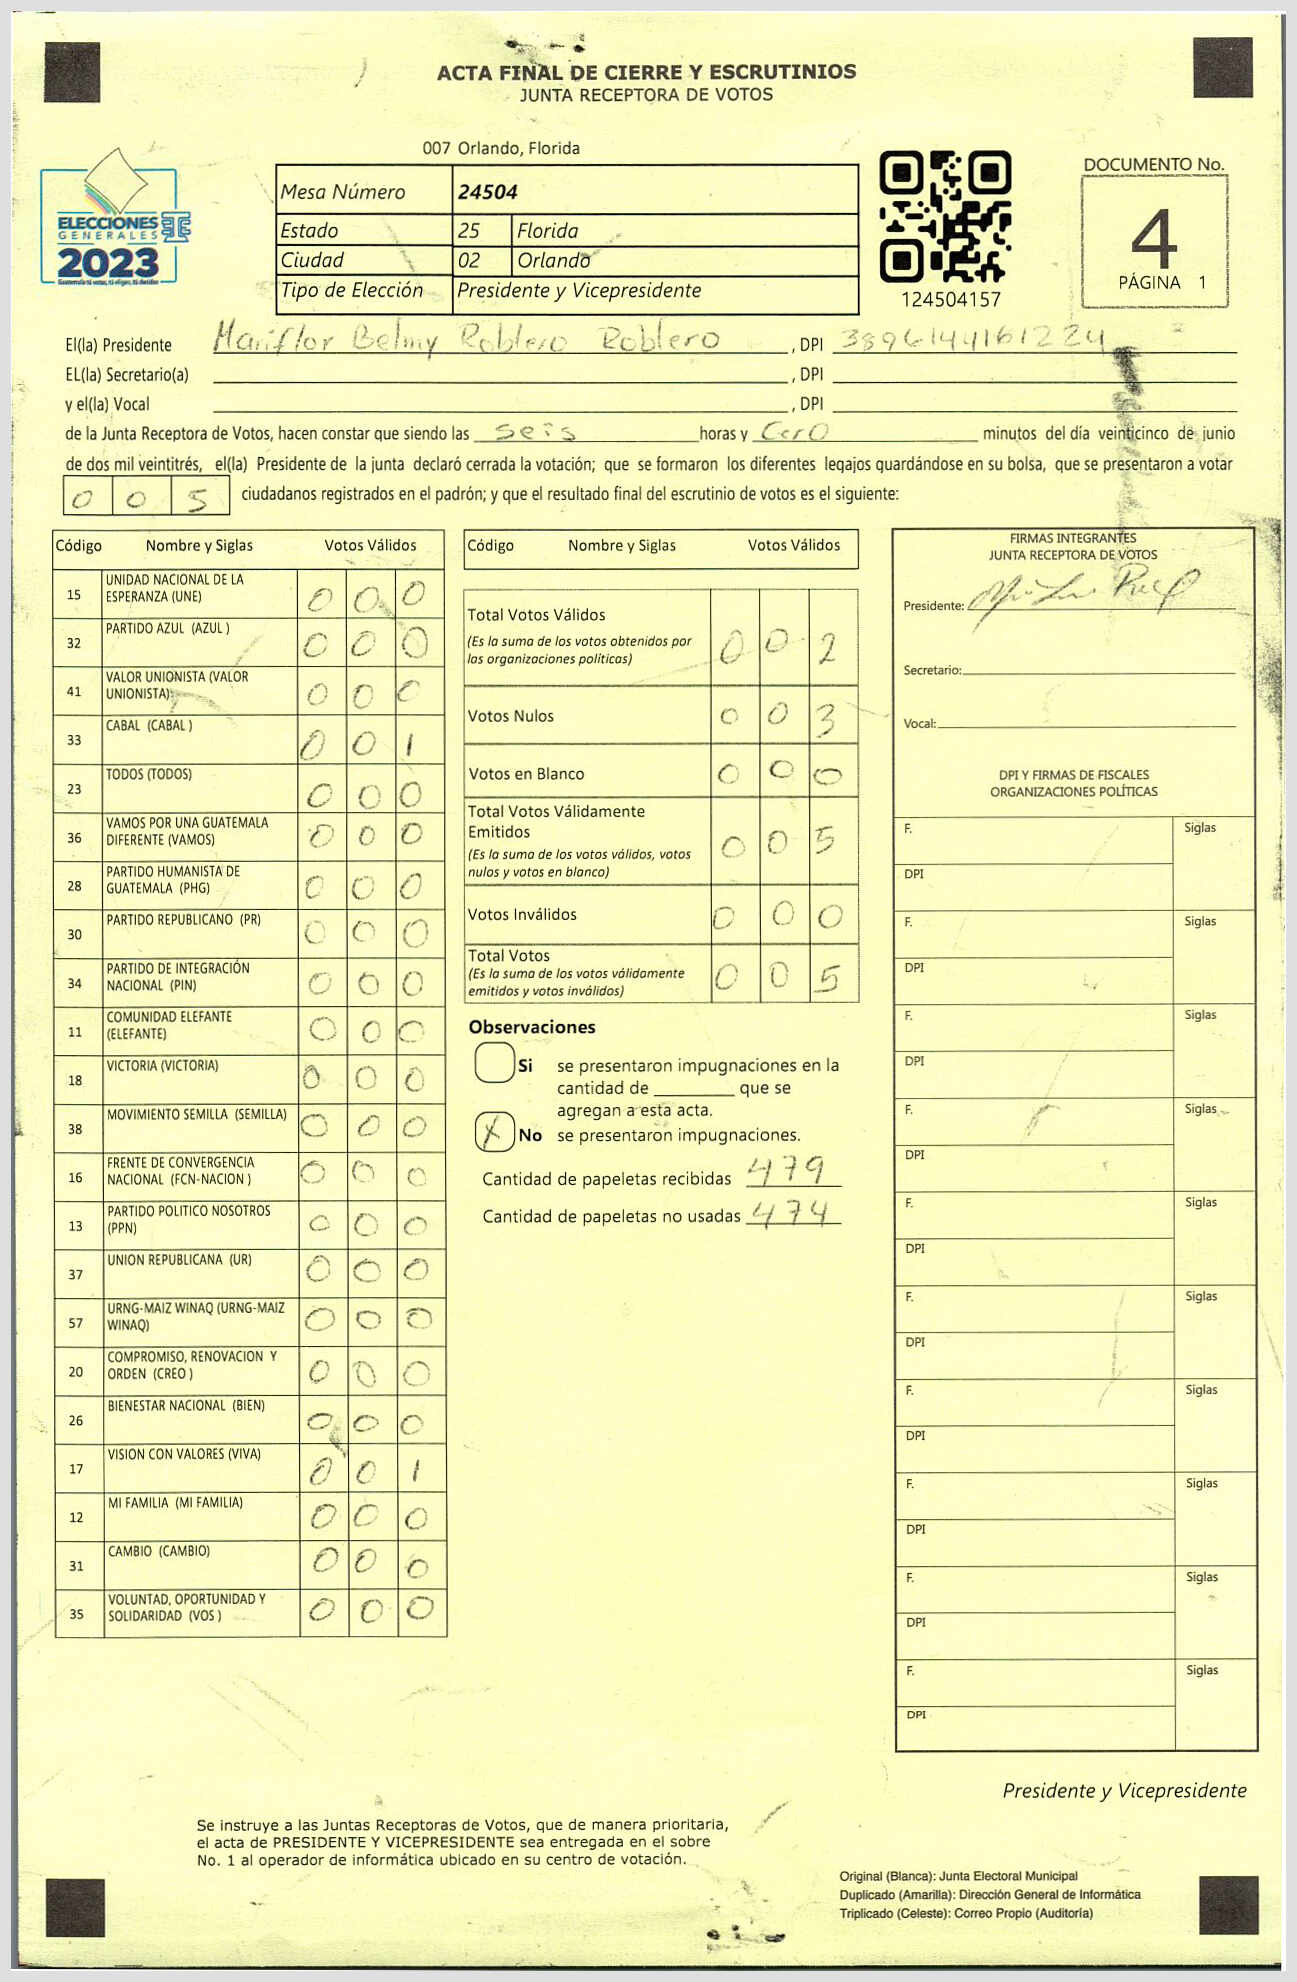 ACTA FINAL DE CIERRE Y ESCRUTINIOS
JUNTA RECEPTORA DE VOTOS
007 Orlando, Florida
ELECCIONES
GENERALES
2023
Guatemala tú votas, tú eliges, tú decides
Mesa Número 24504
Estado 25 Florida
Ciudad 02 Orlando
Tipo de Elección Presidente y Vicepresidente
124504157
DOCUMENTO No.
4
PÁGINA 1
El(la) Presidente Mariflor Belmy Roblero Roblero, DPI 3896144161224
EL(la) Secretario(a) , DPI
y el(la) Vocal , DPI
de la Junta Receptora de Votos, hacen constar que siendo las seis horas y cero minutos del día veinticinco de junio
de dos mil veintitrés, el(la) Presidente de la junta declaró cerrada la votación; que se formaron los diferentes legajos guardándose en su bolsa, que se presentaron a votar
0 0 5 ciudadanos registrados en el padrón; y que el resultado final del escrutinio de votos es el siguiente:
Código Nombre y Siglas Votos Válidos
15 UNIDAD NACIONAL DE LA ESPERANZA (UNE) 0 0 0
32 PARTIDO AZUL (AZUL ) 0 0 0
41 VALOR UNIONISTA (VALOR UNIONISTA) 0 0 0
33 CABAL (CABAL ) 0 0 1
23 TODOS (TODOS) 0 0 0
36 VAMOS POR UNA GUATEMALA DIFERENTE (VAMOS) 0 0 0
28 PARTIDO HUMANISTA DE GUATEMALA (PHG) 0 0 0
30 PARTIDO REPUBLICANO (PR) 0 0 0
34 PARTIDO DE INTEGRACIÓN NACIONAL (PIN) 0 0 0
11 COMUNIDAD ELEFANTE (ELEFANTE) 0 0 0
18 VICTORIA (VICTORIA) 0 0 0
38 MOVIMIENTO SEMILLA (SEMILLA) 0 0 0
16 FRENTE DE CONVERGENCIA NACIONAL (FCN-NACION ) 0 0 0
13 PARTIDO POLITICO NOSOTROS (PPN) 0 0 0
37 UNION REPUBLICANA (UR) 0 0 0
57 URNG-MAIZ WINAQ (URNG-MAIZ WINAQ) 0 0 0
20 COMPROMISO, RENOVACION Y ORDEN (CREO ) 0 0 0
26 BIENESTAR NACIONAL (BIEN) 0 0 0
17 VISION CON VALORES (VIVA) 0 0 1
12 MI FAMILIA (MI FAMILIA) 0 0 0
31 CAMBIO (CAMBIO) 0 0 0
35 VOLUNTAD, OPORTUNIDAD Y SOLIDARIDAD (VOS ) 0 0 0
Código Nombre y Siglas Votos Válidos
Total Votos Válidos 0 0 2
(Es la suma de los votos obtenidos por
las organizaciones políticas)
Votos Nulos 0 0 3
Votos en Blanco 0 0 0
Total Votos Válidamente
Emitidos 0 0 5
(Es la suma de los votos válidos, votos
nulos y votos en blanco)
Votos Inválidos 0 0 0
Total Votos 0 0 5
(Es la suma de los votos válidamente
emitidos y votos inválidos)
Observaciones
Si se presentaron impugnaciones en la
cantidad de ________ que se
agregan a esta acta.
X No se presentaron impugnaciones.
Cantidad de papeletas recibidas 479
Cantidad de papeletas no usadas 474
FIRMAS INTEGRANTES
JUNTA RECEPTORA DE VOTOS
Presidente:
Secretario:
Vocal:
DPI Y FIRMAS DE FISCALES
ORGANIZACIONES POLÍTICAS
F. Siglas
DPI
F. Siglas
DPI
F. Siglas
DPI
F. Siglas
DPI
F. Siglas
DPI
F. Siglas
DPI
F. Siglas
DPI
F. Siglas
DPI
F. Siglas
DPI
F. Siglas
DPI
Presidente y Vicepresidente
Se instruye a las Juntas Receptoras de Votos, que de manera prioritaria,
el acta de PRESIDENTE Y VICEPRESIDENTE sea entregada en el sobre
No. 1 al operador de informática ubicado en su centro de votación.
Original (Blanca): Junta Electoral Municipal
Duplicado (Amarilla): Dirección General de Informática
Triplicado (Celeste): Correo Propio (Auditoría)